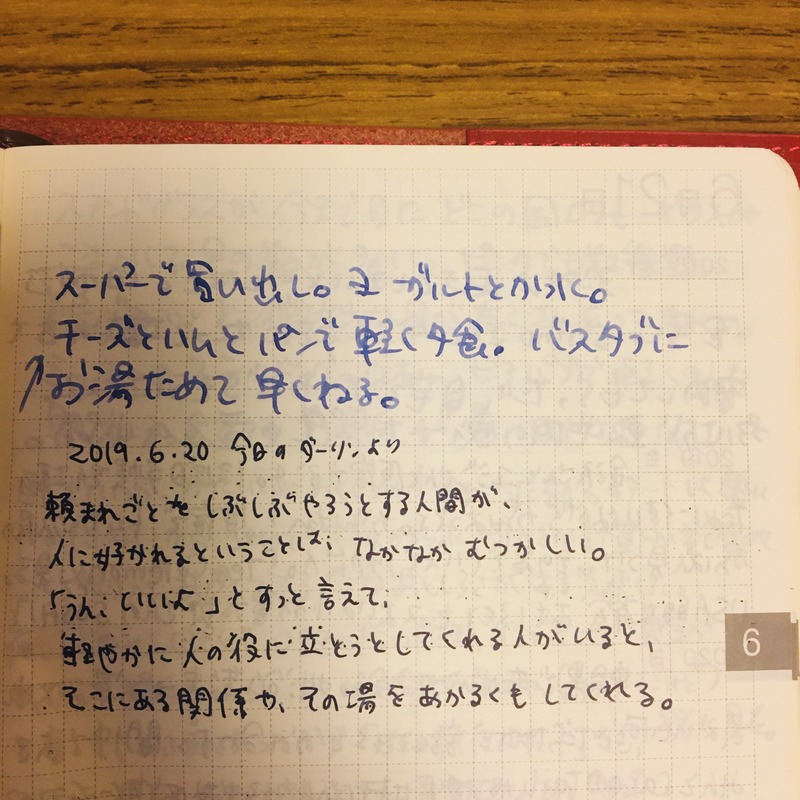 スーパーで買い出し。ヨーグルトとか
チーズとハムとパンで軽く夕食。バスタブに
↗お湯ためて早くねる。
2019.6.20 今日のダーリンより
頼まれごとをしぶしぶやろうとする人間が、
人に好かれるということは、なかなかむつかしい。
「うん、いいよ」とすっと言えて、
軽やかに人の役に立とうとしてくれる人がいると、
そこにある関係や、その場をあかるくもしてくれる。
6